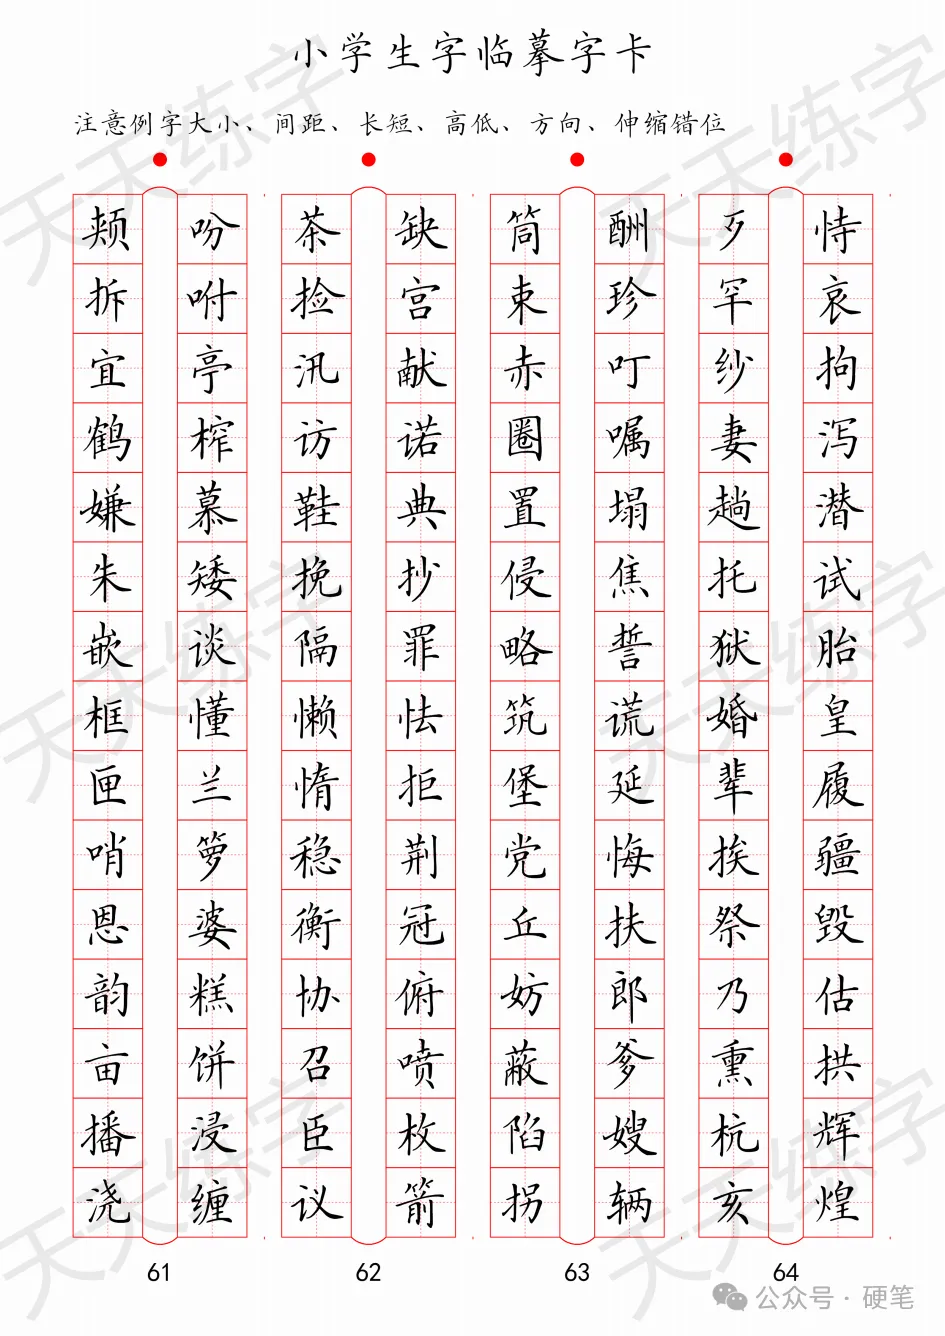 小学生字临摹字卡
注意例字大小、间距、长短、高低、方向、伸缩错位
颊 吩 茶 缺 筒 酬 歹 恃
拆 咐 捡 宫 束 珍 罕 哀
宜 亭 汛 献 赤 叮 纱 拘
鹤 榨 访 诺 圈 嘱 妻 泻
嫌 慕 鞋 典 置 塌 趟 潜
朱 矮 挽 抄 侵 焦 托 试
嵌 谈 隔 罪 略 誓 狱 胎
框 懂 懒 怯 筑 谎 婚 皇
匣 兰 惰 拒 堡 延 辈 履
哨 箩 稳 荆 党 悔 挨 疆
恩 婆 衡 冠 丘 扶 祭 毁
韵 糕 协 俯 妨 郎 乃 估
亩 饼 召 喷 蔽 爹 熏 拱
播 浸 臣 枚 陷 嫂 杭 辉
浇 缠 议 箭 拐 辆 亥 煌
61 62 63 64
公众号·硬笔
天天练字
天天练字
天天练字
天天练字
天天练字
天天练字